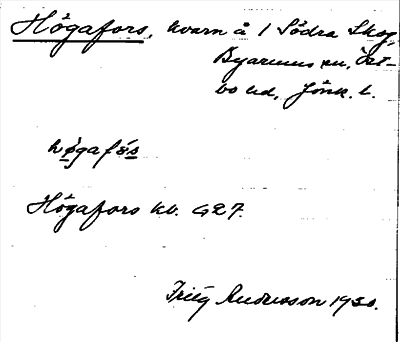 Högafors, kvarn å 1 Södra Skog,
Byarums sn, Öst-
bo hd, Jönk. l.
høgafós
Högafors kv. G27.
Frieg Andersson 1930.